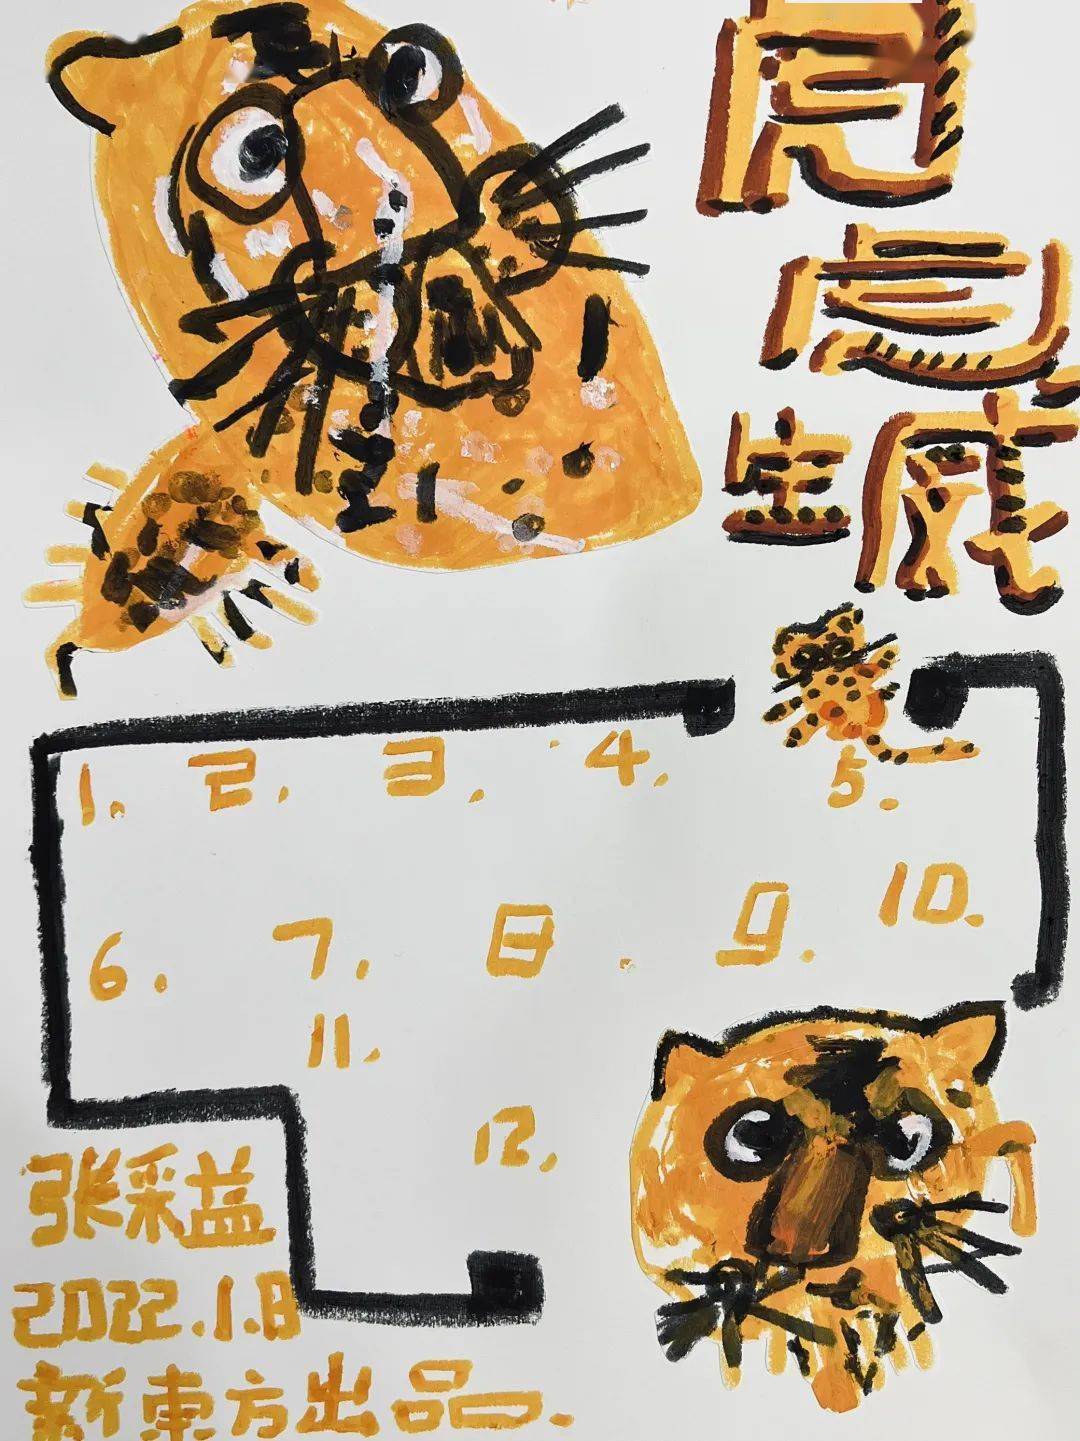 虎虎
生威
1. 2. 3. 4. 5.
6. 7. 8. 9. 10.
11.
12.
张采益
2022.1.8
新東方出品.